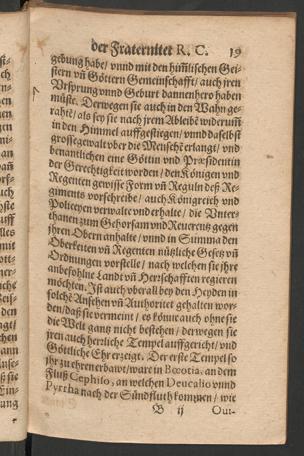 der Fraternitet R. C. 19
gebung habe/ vnnd mit den him̃lischen Gei-
stern vñ Göttern Gemeinschafft/ auch jren
Vrsprung vnnd Geburt dannenhero haben
müste. Derwegen sie auch in den Wahn ge-
raht/ als sey sie nach jrem Ableibẽ widerum̃
in den Himmel auffgestiegen/ vnnd daselbst
grosse gewalt vber die Menschẽ erlangt/ vnd
benantlichen eine Göttin vnd Præsidentin
der Gerechtigkeit worden/ den Königen vnd
Regenten gewisse Form vñ Reguln deß Re-
giments vorschreibe/ auch Königreich vnd
Policeyen verwalte vnd erhalte/ die Vnter-
thanen zum Gehorsam vnd Reuerentz gegen
jhren Obern anhalte/ vnnd in Summa den
Oberkeiten vñ Regenten nützliche Gesetz vñ
Ordnungen vorstelle/ nach welchen sie jhre
anbefohlne Landt vñ Herrschafften regieren
möchten. Ist auch vberall bey den Heyden in
solchẽ Ansehen vñ Authoritet gehalten wor-
den/ daß sie vermeint/ es könne auch ohne sie
die Welt gantz nicht bestehen/ derwegen sie
jren auch herrliche Tempel auffgericht/ vnd
Göttliche Ehr erzeigt. Der erste Tempel so
jhr zu ehren erbawt/ ware in Bœotia, an dem
Fluß Cephiso, an welchen Deucalio vnnd
Pyrrha nach der Sündfluth kommen/ wie
B ij Oui-